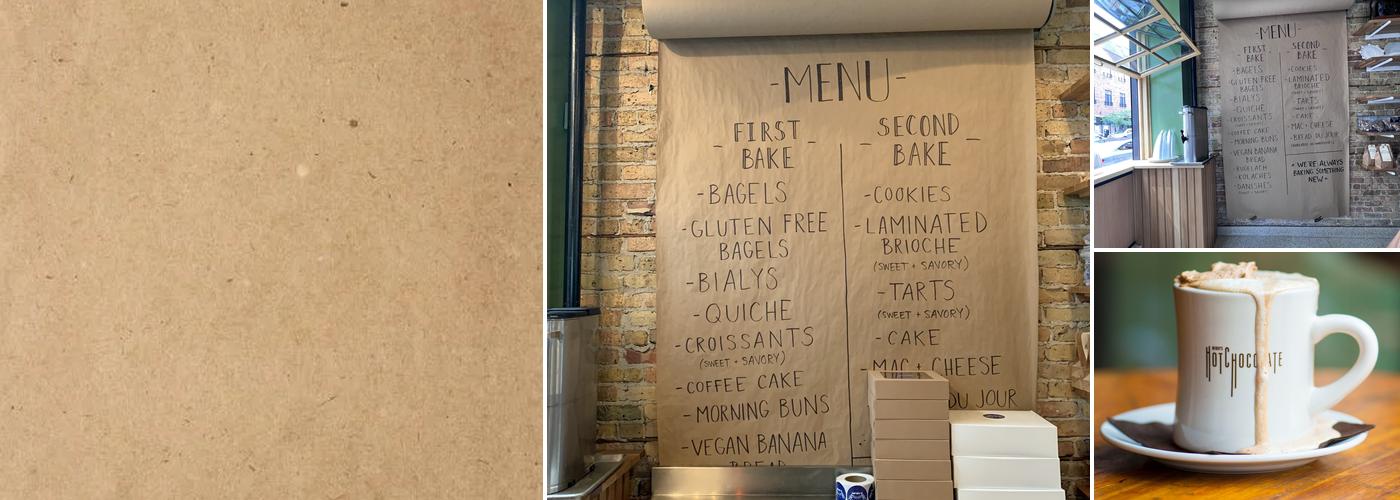 -MENU-
- FIRST -
BAKE
-BAGELS
-GLUTEN FREE
BAGELS
-BIALYS
-QUICHE
-CROISSANTS
(SWEET + SAVORY)
-COFFEE CAKE
-MORNING BUNS
-VEGAN BANANA
BREAD
- SECOND -
BAKE
-COOKIES
-LAMINATED
BRIOCHE
(SWEET + SAVORY)
-TARTS
(SWEET + SAVORY)
-CAKE
-MAC + CHEESE
DU JOUR
-MENU-
FIRST
BAKE
-BAGELS
-GLUTEN FREE
BAGELS
-BIALYS
-QUICHE
-CROISSANTS
-COFFEE CAKE
-MORNING BUNS
-VEGAN BANANA
BREAD
-RUGELACH
-KOLACHES
-DANISHES
SECOND
BAKE
-COOKIES
-LAMINATED
BRIOCHE
-TARTS
-CAKE
-MAC + CHEESE
-BREAD DU JOUR
+ WE'RE ALWAYS
BAKING SOMETHING
NEW +
HOTCHOCOLATE